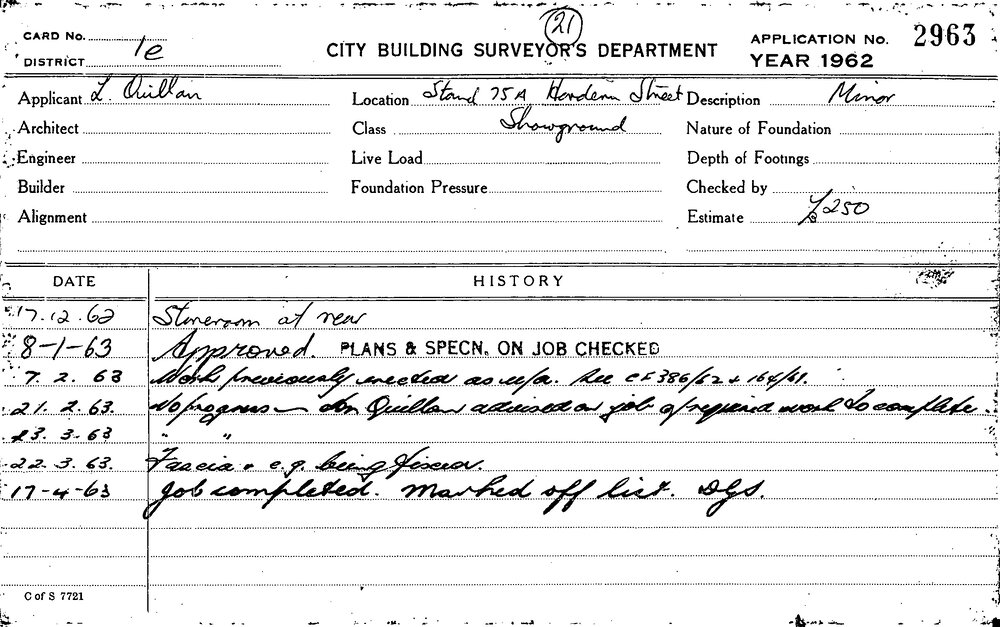 21
CARD No.
DISTRICT 1e
CITY BUILDING SURVEYOR'S DEPARTMENT
APPLICATION No. 2963
YEAR 1962
Applicant L. Quillan Location Stand 75A Hordern Street Description Minor
Architect Class Showground Nature of Foundation
Engineer Live Load Depth of Footings
Builder Foundation Pressure Checked by
Alignment Estimate £250
DATE HISTORY
17.12.62 Storeroom at rear
8-1-63 Approved. PLANS & SPECN. ON JOB CHECKED
7. 2. 63 Work previously erected as u/a. See CF 386/62 & 164/61.
21. 2. 63. No progress — Mr Quillan advised on job of required work to complete.
23. 3-63 " "
22. 3. 63. Fascia & e.g. being fixed.
17-4-63 Job completed. Marked off list. DGS.
C of S 7721